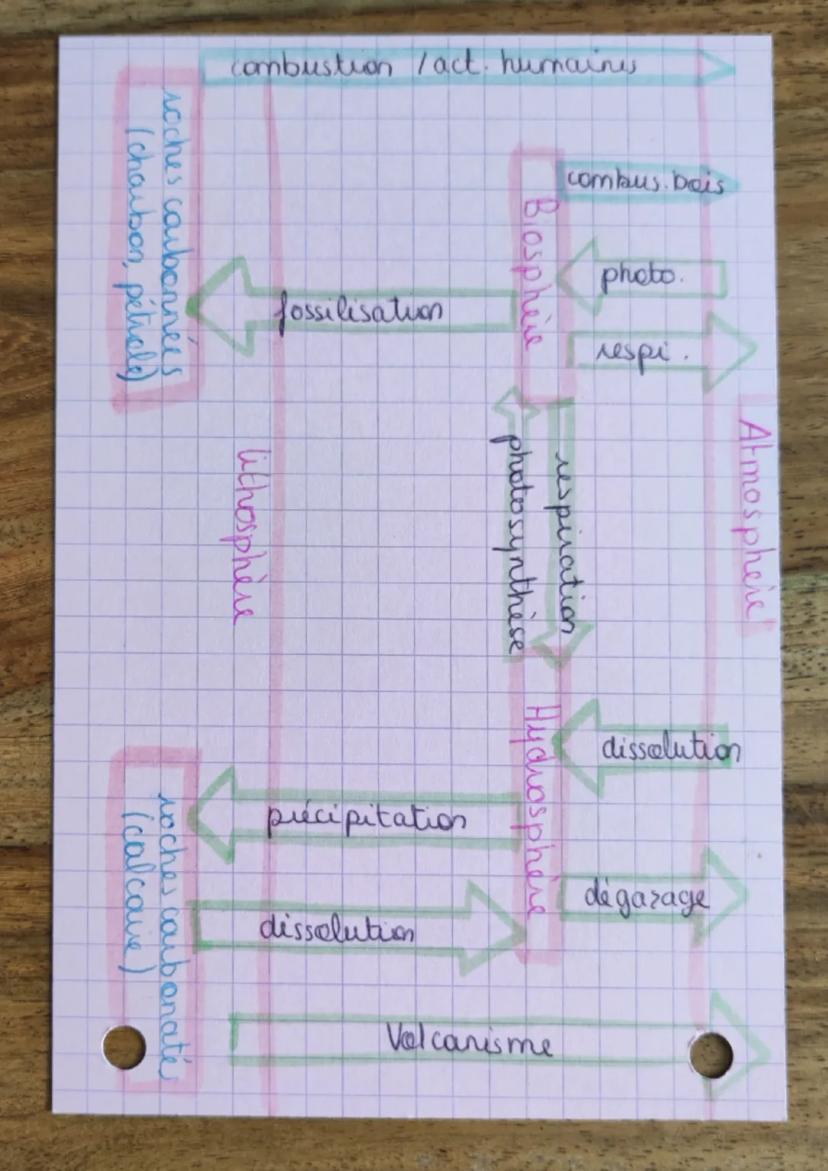 combustion / act. humaines
combus. bois
photo.
respi.
Biosphère
fossilisation
roches carbonnées
(charbon, pétrole)
Atmosphère
respiration
photosynthèse
lithosphère
dissolution
Hydrosphère
précipitation
dégazage
dissolution
roches carbonatés
(calcaire)
Volcanisme